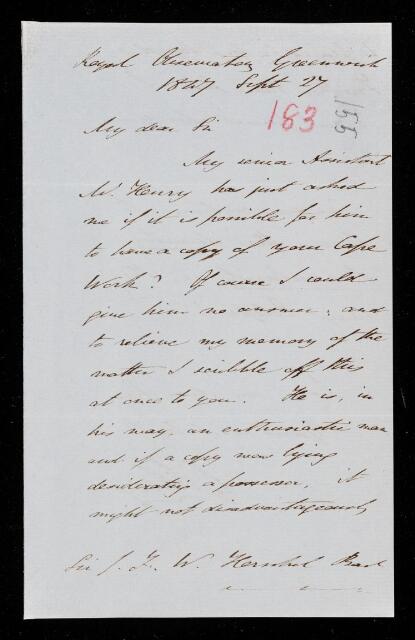 Royal Observatory Greenwich
1847 Sept 27
183
155
My dear Sir
My senior Assistant
Mr. Henry has just asked
me if it is possible for him
to have a copy of your Cape
Work? Of course I could
give him no answer, and
to relieve my memory of the
matter I scribble off this
at once to you. He is, in
his way, an enthusiastic man
and if a copy was lying
desiderating a possessor, it
might not disadvantageously
Sir J. F. W. Herschel Bart